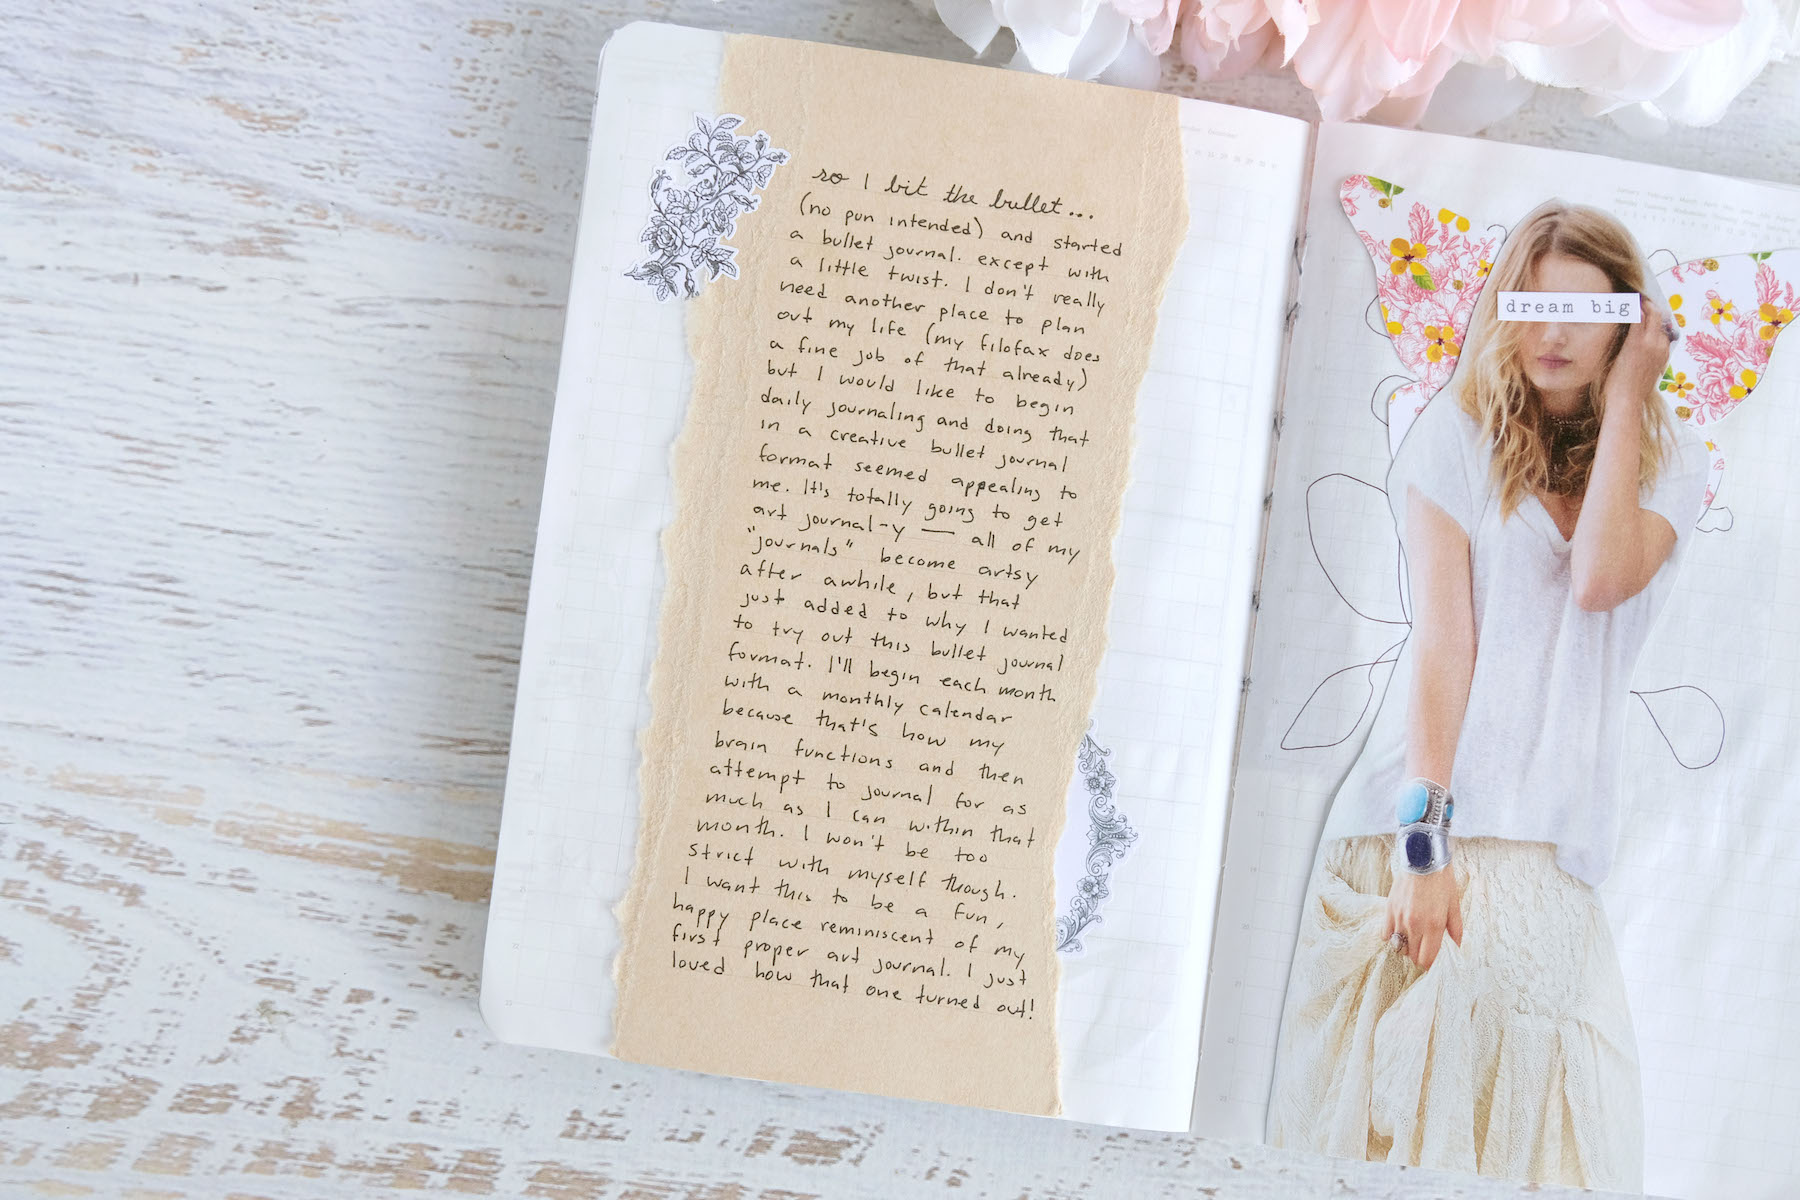 so I bit the bullet...
(no pun intended) and started
a bullet journal. except with
a little twist. I don't really
need another place to plan
out my life (my filofax does
a fine job of that already)
but I would like to begin
daily journaling and doing that
in a creative bullet journal
format seemed appealing to
me. It's totally going to get
art journal-y — all of my
"journals" become artsy
after awhile, but that
just added to why I wanted
to try out this bullet journal
format. I'll begin each month
with a monthly calendar
because that's how my
brain functions and then
attempt to journal for as
much as I can within that
month. I won't be too
strict with myself though.
I want this to be a fun,
happy place reminiscent of my
first proper art journal. I just
loved how that one turned out!
dream big